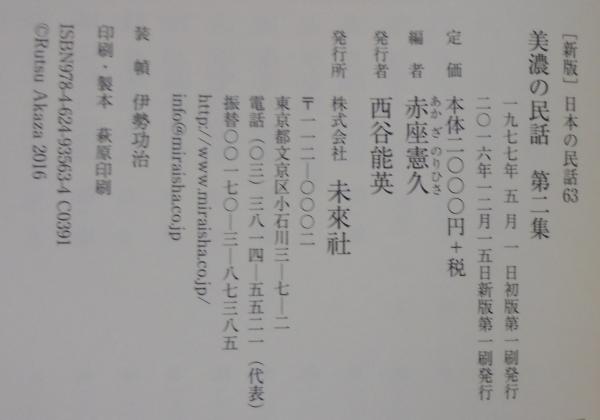 ［新版］日本の民話63
美濃の民話　第二集
一九七七年　五月　一日初版第一刷発行
二〇一六年一二月一五日新版第一刷発行
定　価　本体二〇〇〇円＋税
あか　ざ　のりひさ
編　者　赤座憲久
発行者　西谷能英
発行所　株式会社　未來社
〒一一二―〇〇〇二
東京都文京区小石川三―七―二
電話（〇三）三八一四―五五二一（代表）
振替〇〇一七〇―三―八七三八五
http://www.miraisha.co.jp/
info@miraisha.co.jp
装　幀　伊勢功治
印刷・製本　萩原印刷
ISBN978-4-624-93563-4 C0391
©Rutsu Akaza 2016